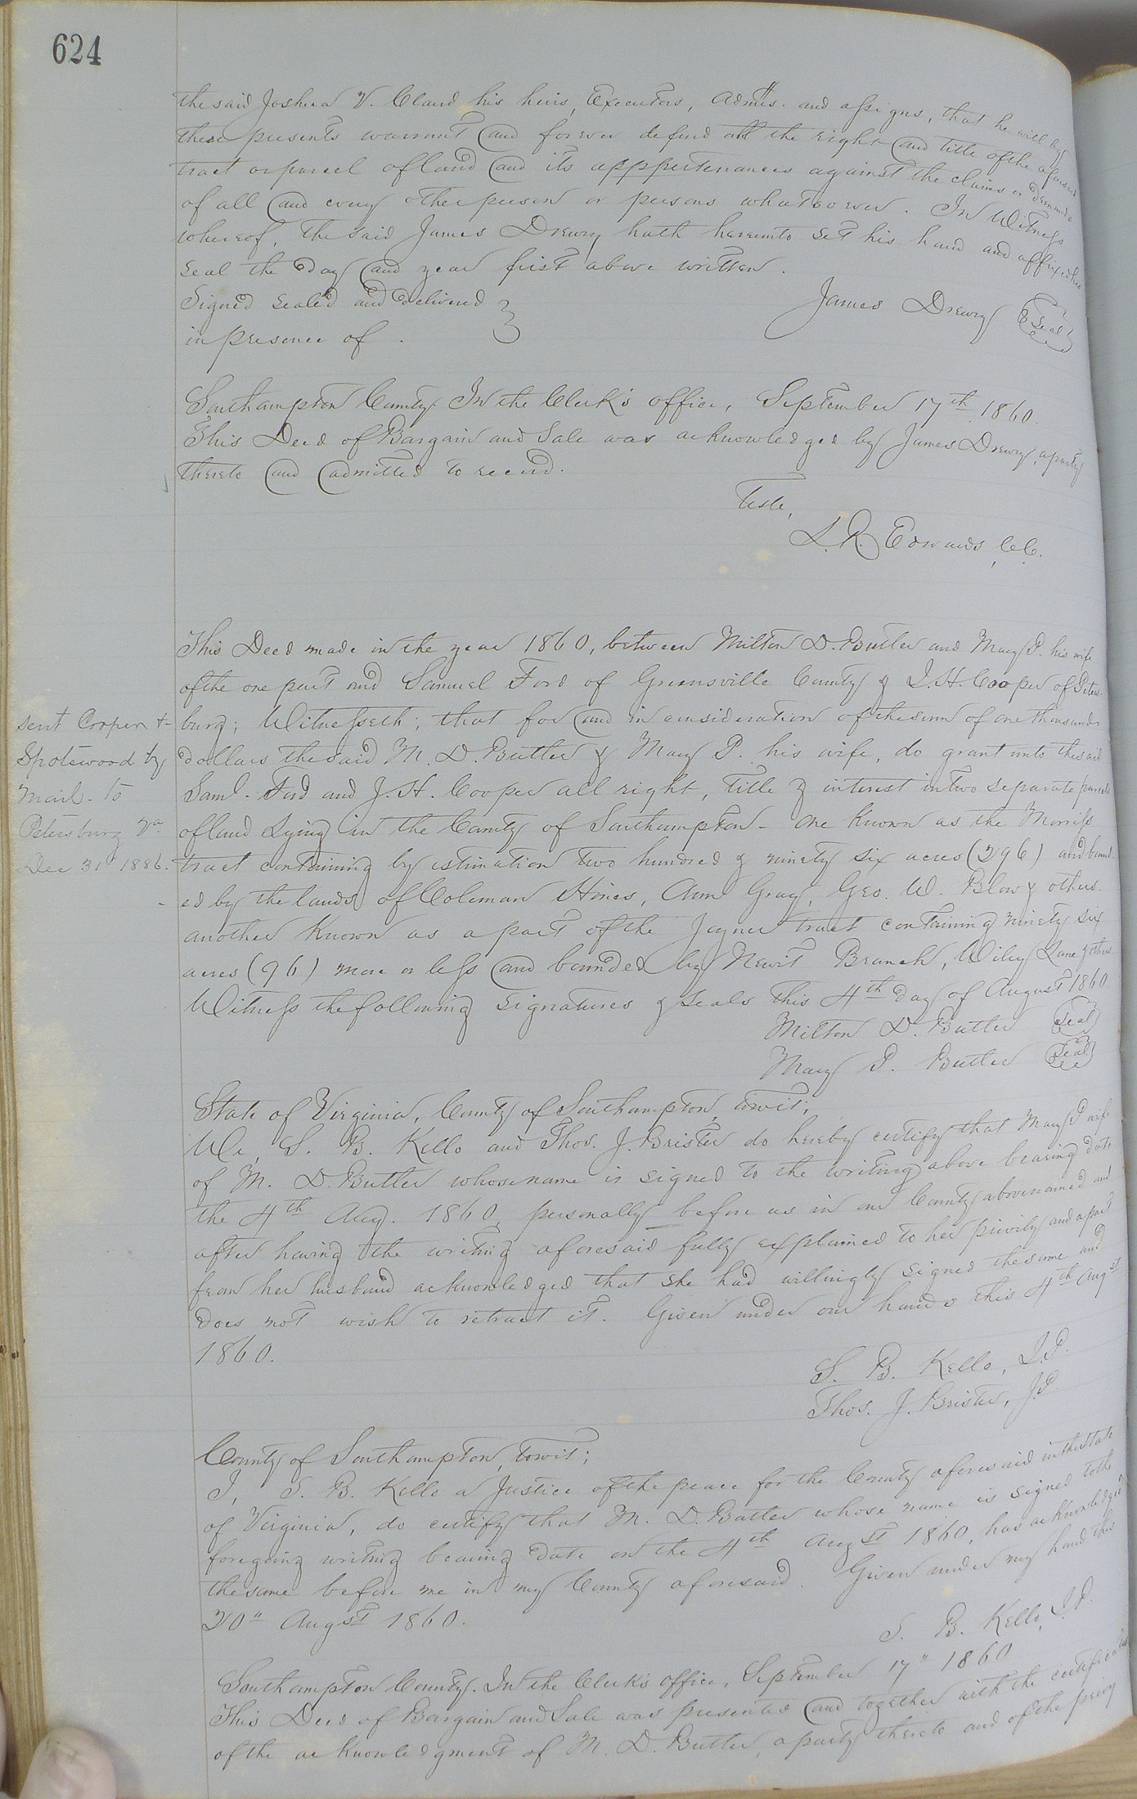 624
the said Joshua V. Claud his heirs, Executors, Admrs. and assigns, that he will by
these presents warrant and forever defend all the right and title of the aforesaid
tract or parcel of land and its appertenances against the claims or demands
of all and every other person or persons whatsoever. In Witness
whereof, the said James Drewry hath hereunto set his hand and affixed his
seal the day and year first above written.
Signed sealed and delivered
in presence of.
James Drewry Seal
Southampton County. In the Clerk's office, September 17th 1860.
This Deed of Bargain and Sale was acknowledged by James Drewry, a party
thereto and admitted to record.
Teste,
L. R. Edwards, C.C.
This Deed made in the year 1860, between Milton D. Butler and Mary P. his wife
of the one part and Samuel Ford of Greensville County & J. H. Cooper of Peters-
burg; Witnesseth; that for and in consideration of the sum of one thousand
dollars the said M. D. Butler & Mary P. his wife, do grant unto the said
Saml. Ford and J. H. Cooper all right, title & interest in two separate parcels
of land lying in the County of Southampton - one known as the Morriss
tract containing by estimation two hundred & ninety six acres (296) and bound-
ed by the lands of Coleman Hines, Ann Gray, Geo. W. Blow & others
another known as a part of the Joyner tract containing ninety six
acres (96) more or less and bounded by Newit Branch, Wiley Lane & others
Witness the following signatures & seals this 4th day of August 1860.
Milton D. Butler Seal
Mary P. Butler Seal
sent Cooper &
Spotswood by
mail to
Petersburg Va.
Dec 31 1886.
State of Virginia, County of Southampton, towit;
We, S. B. Kello and Thos. J. Brister do hereby certify that Mary P. wife
of M. D. Butler whose name is signed to the writing above bearing date
the 4th Aug. 1860, personally before us in our County abovenamed and
after having the writing aforesaid fully explained to her privily and apart
from her husband acknowledged that she had willingly signed the same and
does not wish to retract it. Given under our hands this 4th Augst
1860.
S. B. Kello, J.P.
Thos. J. Brister, J.P.
County of Southampton, towit;
I, S. B. Kello a Justice of the peace for the County aforesaid in the State
of Virginia, do certify that M. D. Butler whose name is signed to the
foregoing writing bearing date on the 4th Augst 1860, has acknowledged
the same before me in my County aforesaid. Given under my hand this
20" Augst 1860.
S. B. Kello, J.P.
Southampton County. In the Clerk's office, September 17" 1860
This Deed of Bargain and Sale was presented and together with the certificates
of the acknowledgment of M. D. Butler, a party thereto and of the privy